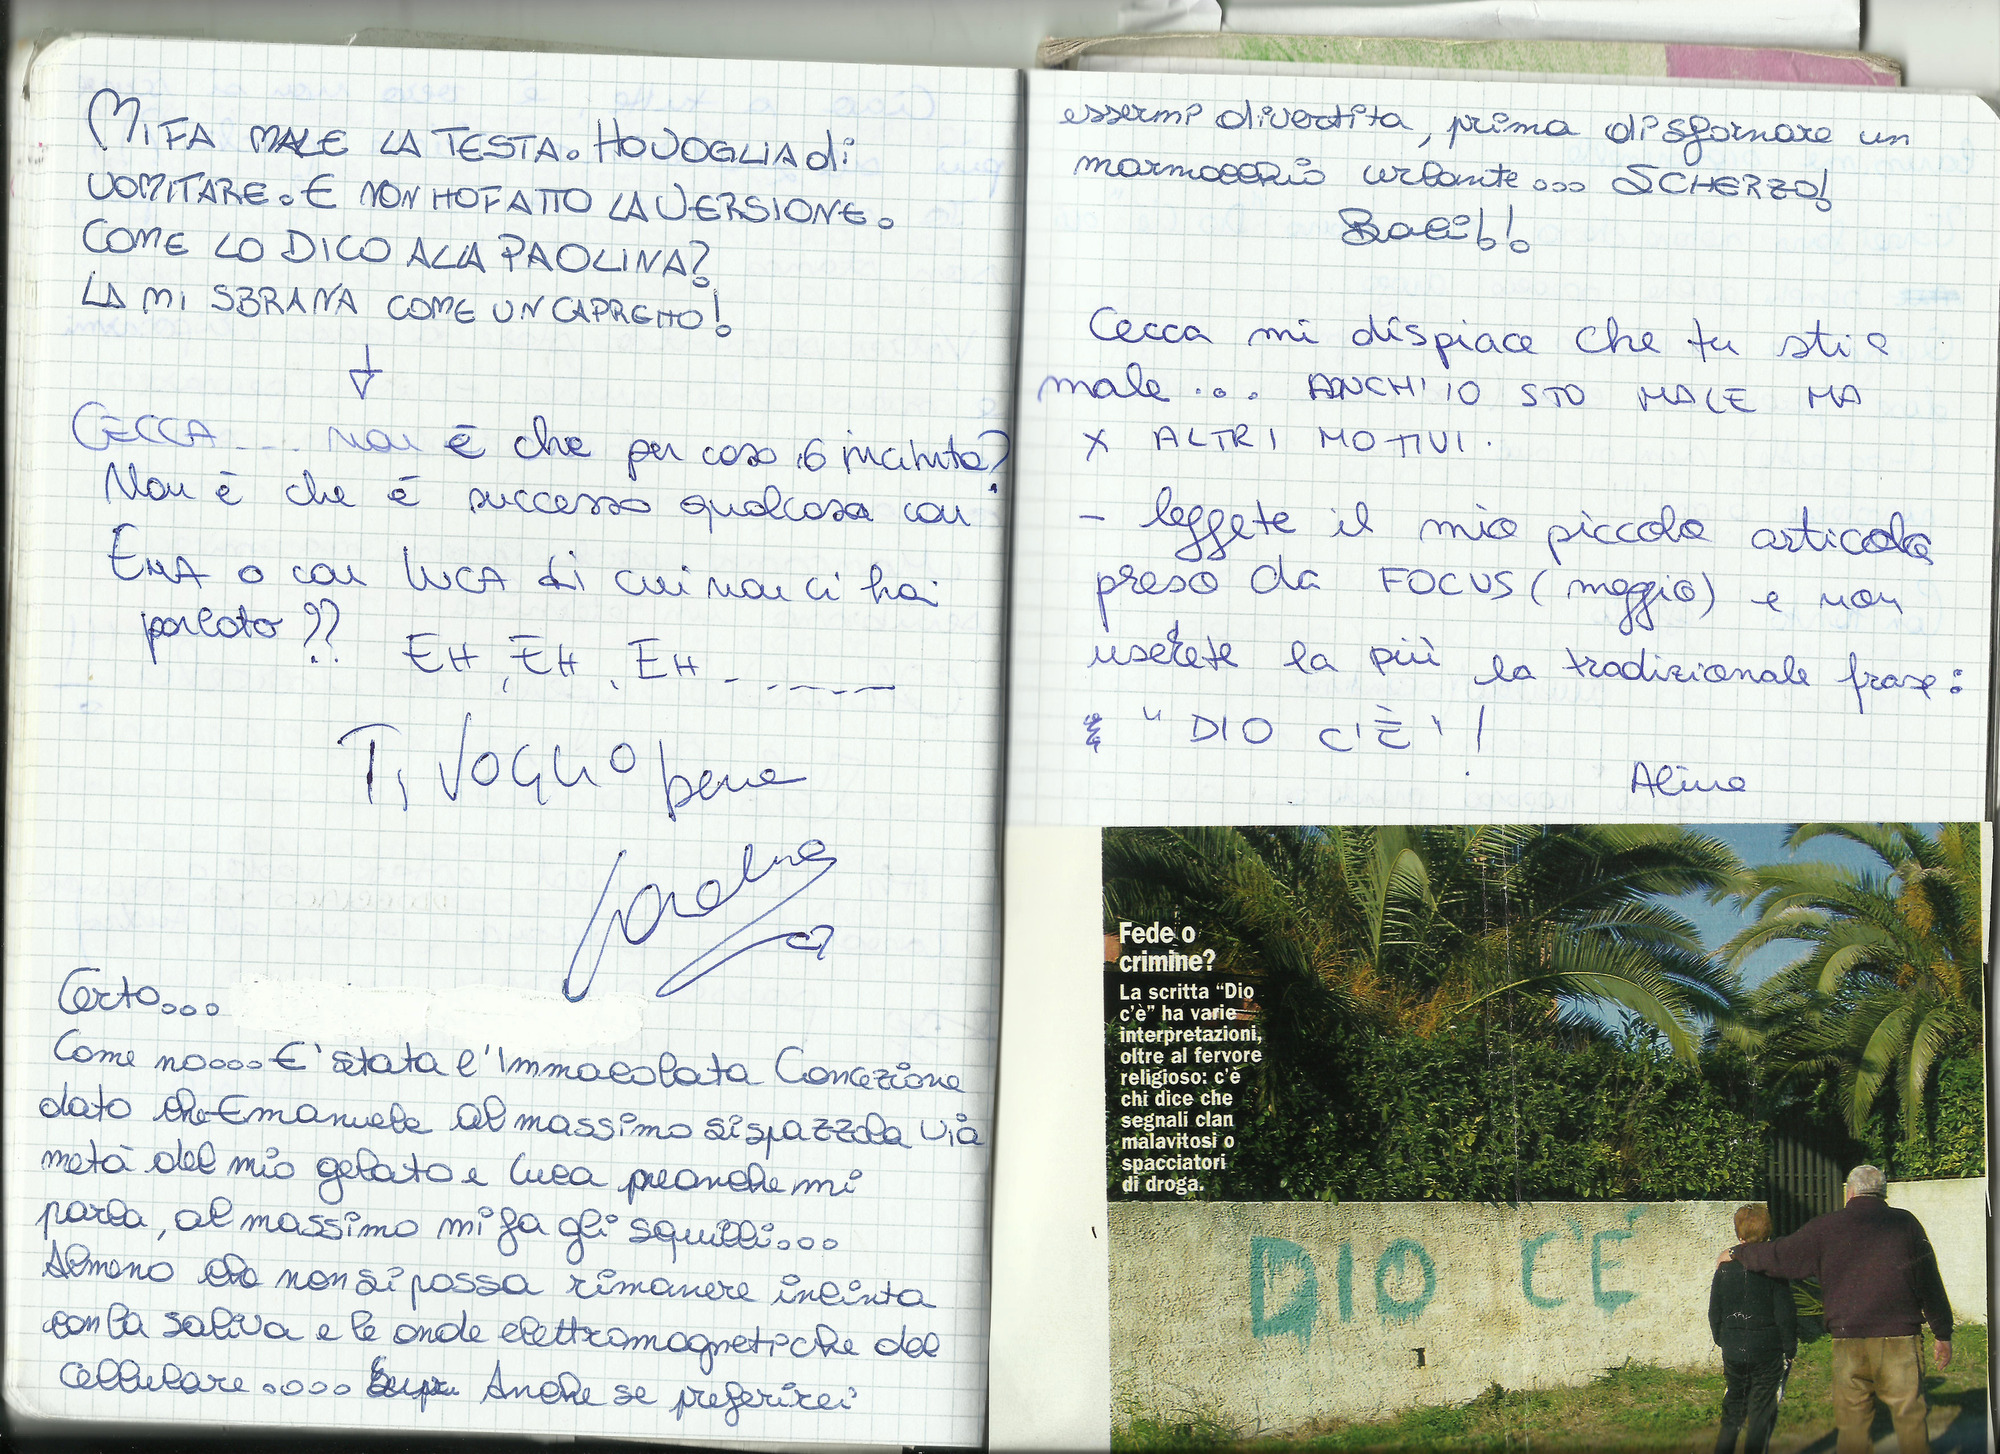 MI FA MALE LA TESTA. HO VOGLIA di
VOMITARE. E NON HO FATTO LA VERSIONE.
COME LO DICO ALLA PAOLINA?
LA MI SBRANA COME UN CAPRETTO!
CECCA.... non è che per caso 6 incinta?
Non è che è successo qualcosa con
EMA o con LUCA di cui non ci hai
parlato??  EH, EH, EH - - - - -
TI VOGLIO bene
Certo...
Come no.... E' stata l'Immacolata Concezione
dato che Emanuele al massimo si spazzola via
metà del mio gelato e Luca neanche mi
parla, al massimo mi fa gli squilli...
Almeno che non si possa rimanere incinta
con la saliva e le onde elettromagnetiche del
cellulare.... Anche se preferirei
essermi divertita, prima di sfornare un
marmocchio urlante... SCHERZO!
Baci!!
Cecca mi dispiace che tu stia
male... ANCH'IO STO MALE MA
X ALTRI MOTIVI.
- leggete il mio piccolo articolo
preso da FOCUS (maggio) e non
userete la più la tradizionale frase:
"DIO C'È"!
Aline
Fede o
crimine?
La scritta "Dio
c'è" ha varie
interpretazioni,
oltre al fervore
religioso: c'è
chi dice che
segnali clan
malavitosi o
spacciatori
di droga.
DIO C'È